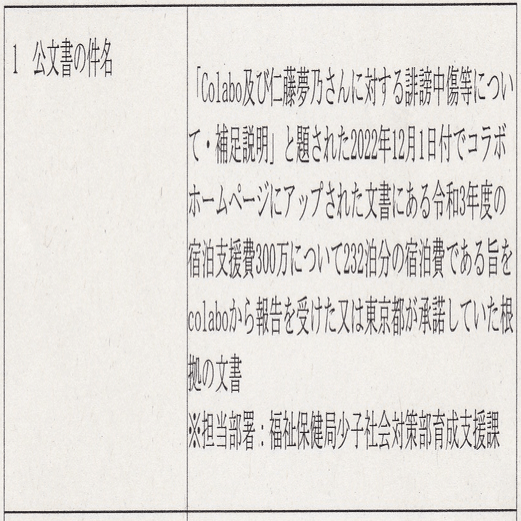 1 公文書の件名
「Colabo及び仁藤夢乃さんに対する誹謗中傷等につい
て・補足説明」と題された2022年12月1日付でコラボ
ホームページにアップされた文書にある令和3年度の
宿泊支援費300万について232泊分の宿泊費である旨を
colaboから報告を受けた又は東京都が承諾していた根
拠の文書
※担当部署：福祉保健局少子社会対策部育成支援課